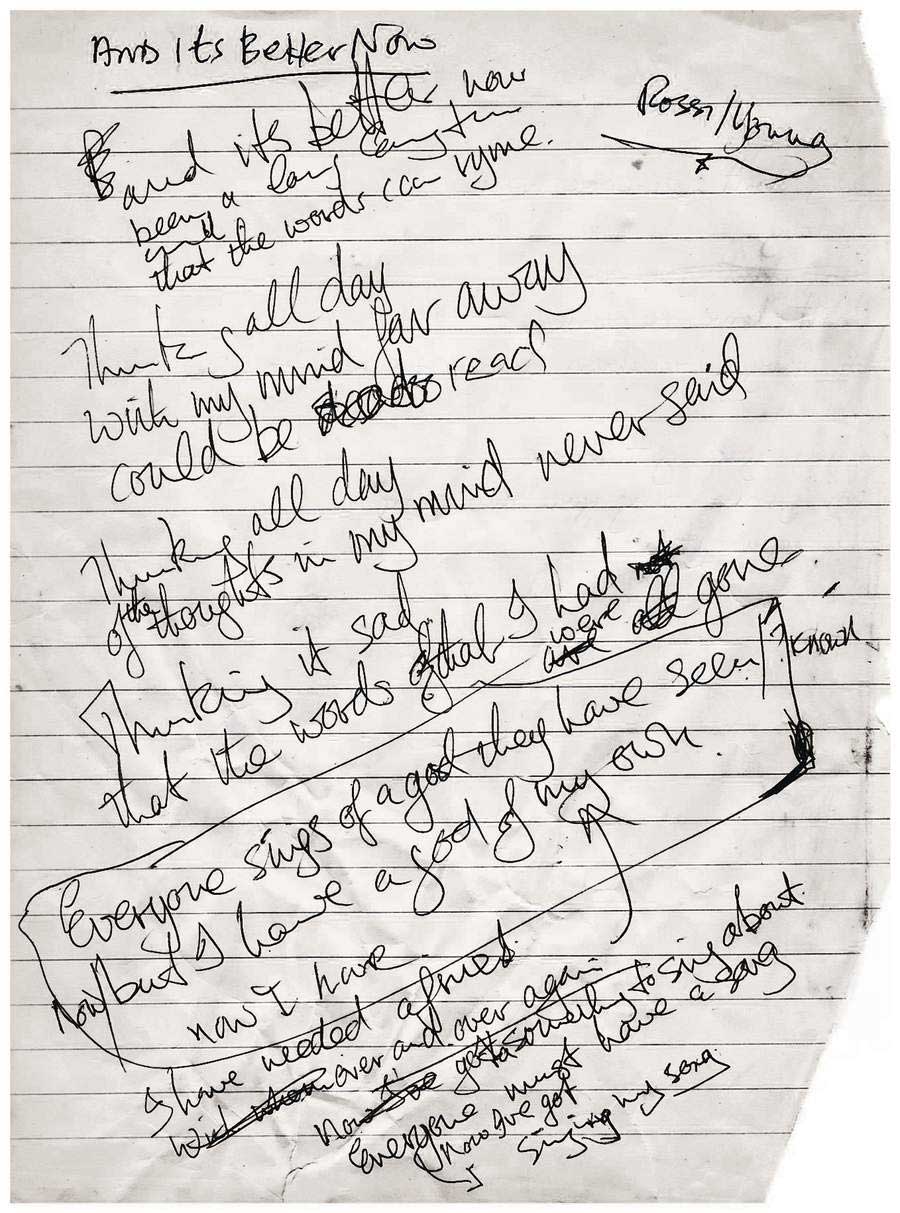 And Its Better Now
Rossi/Young
and its better now
been a long long time
until
that the words can ryme.
Thinking all day
with my mind far away
could be read
Thinking all day
of the thoughts in my mind never said
Thinking it sad
that the words that I had were all gone
Everyone sings of a god they have seen/?known
Now/but I have a god of my own.
now I have
I have needed a friend
over and over again
Now I've got something to sing about
Everyone must have a song
Now Ive got
Singing my song